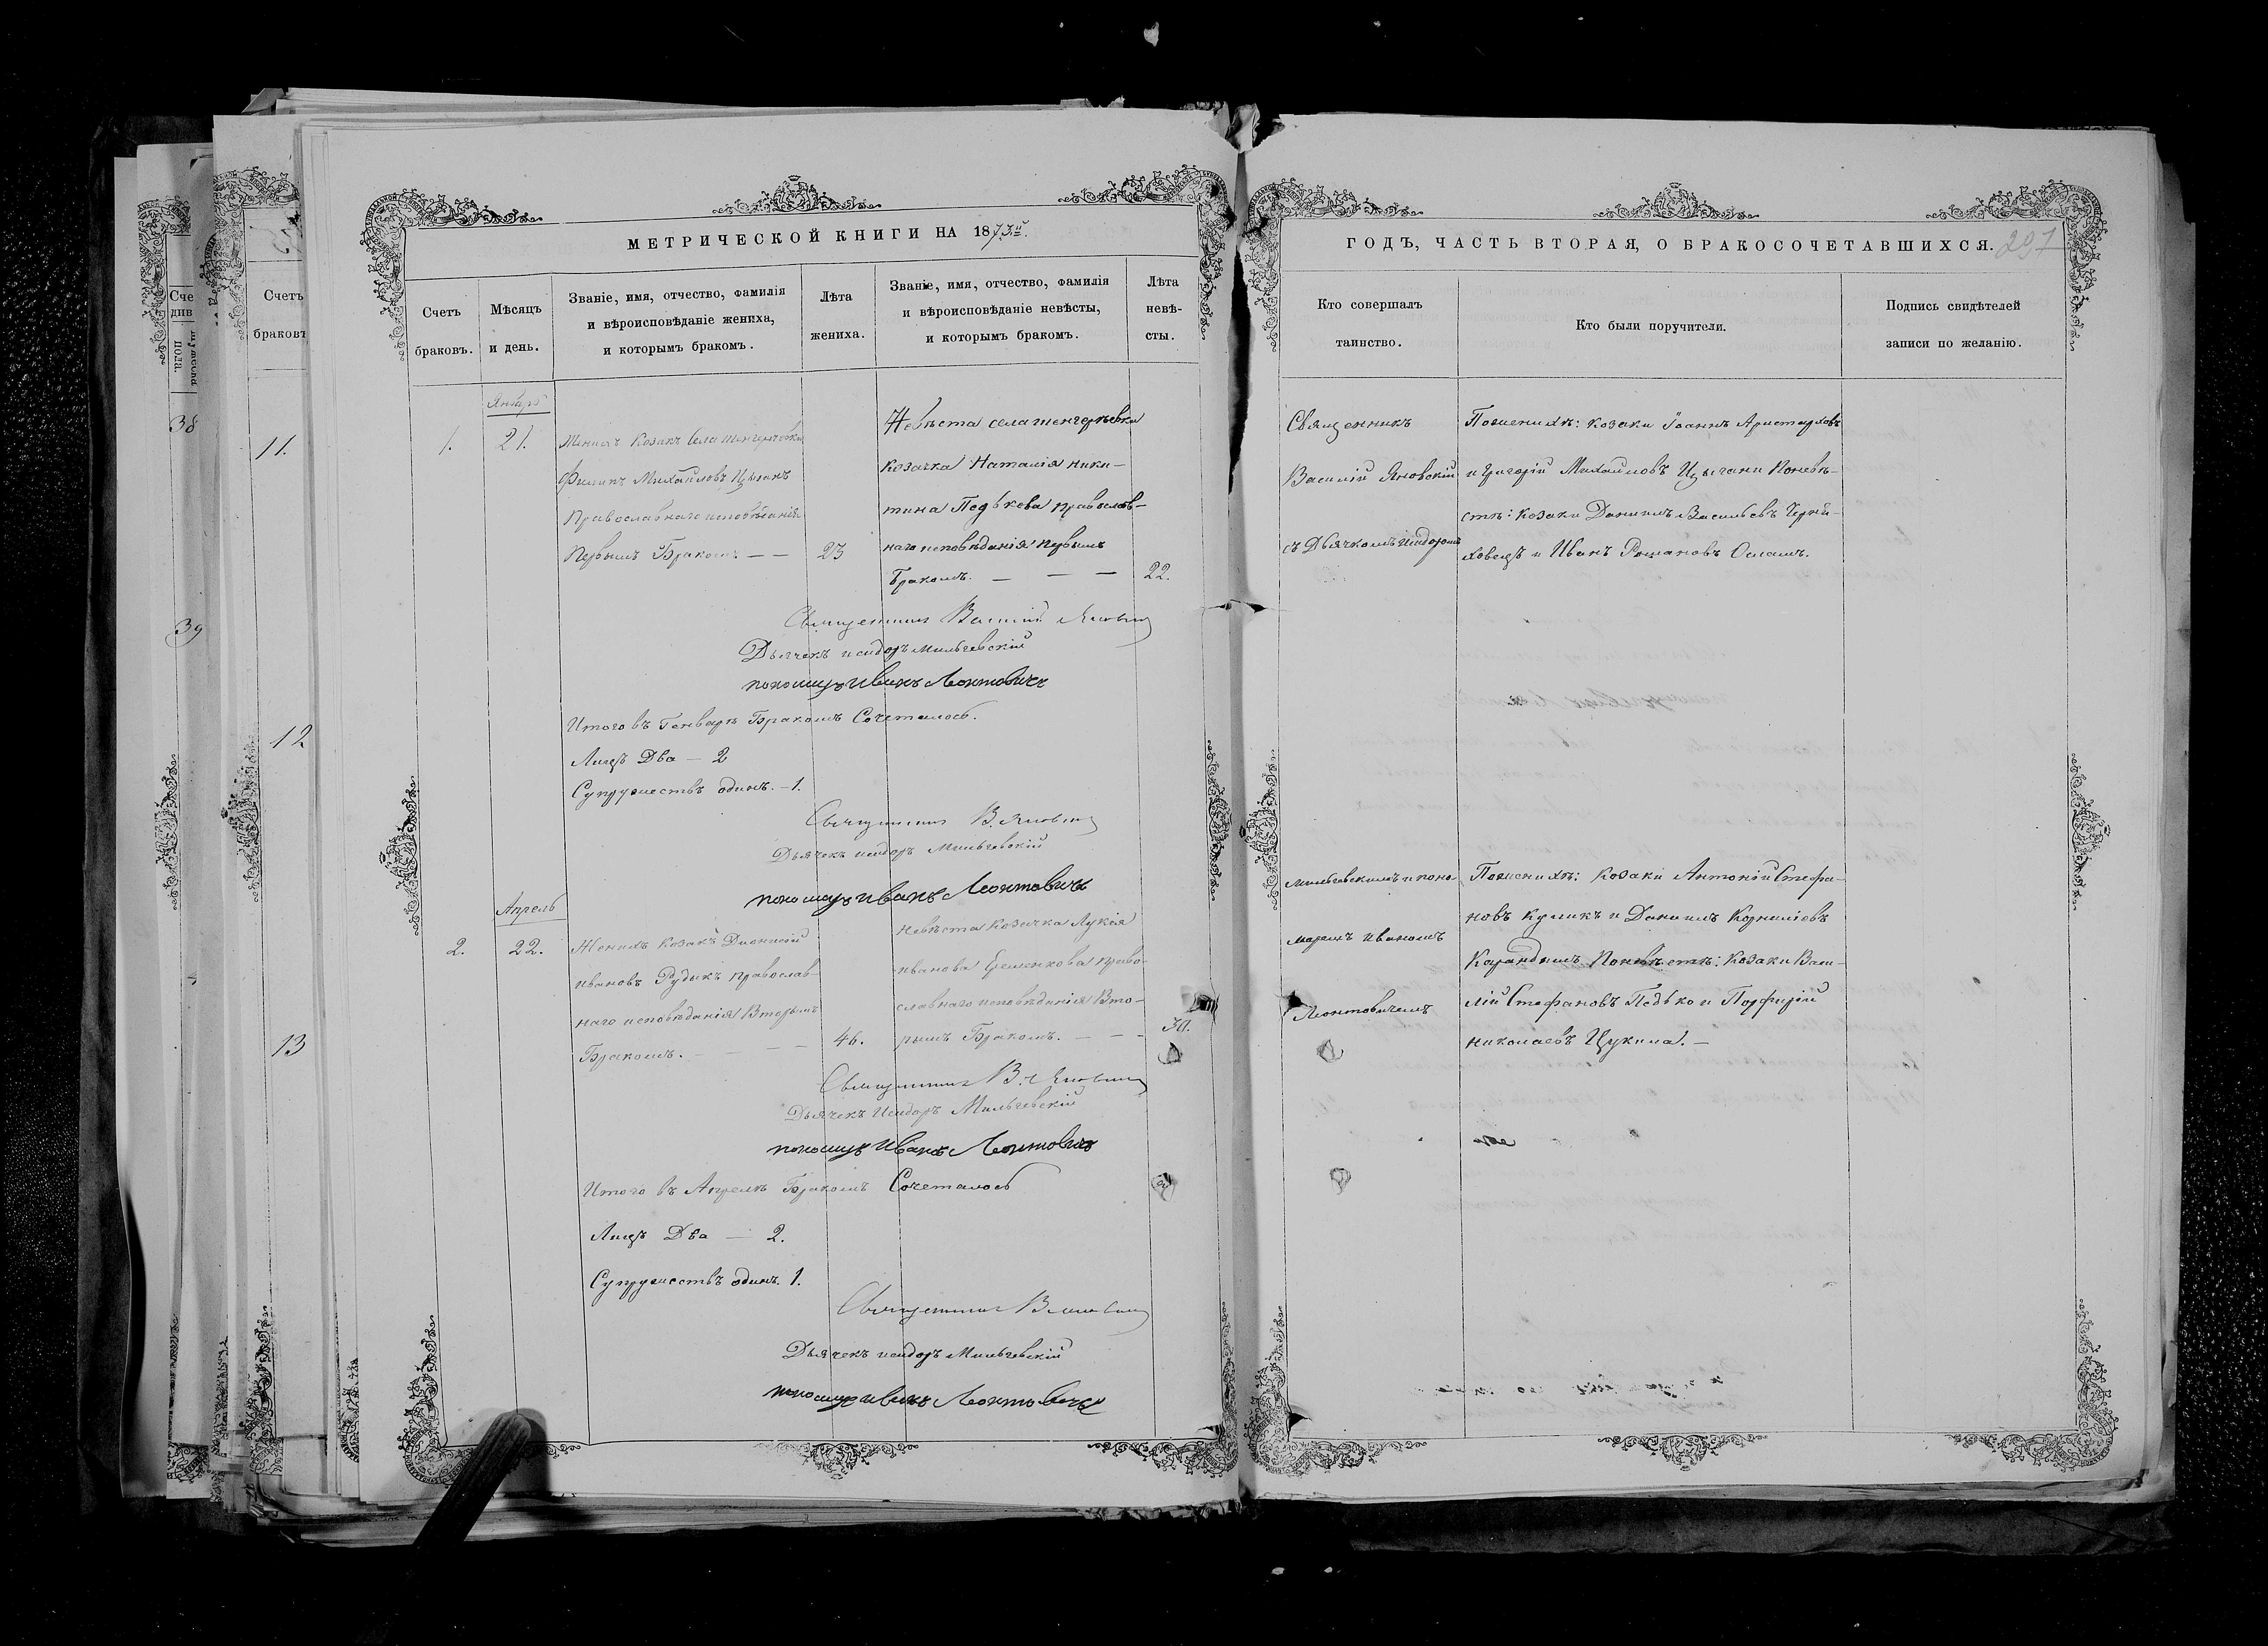 МЕТРИЧЕСКОЙ КНИГИ НА 1873й.
Счетъ браковъ.
Мѣсяцъ и день.
Званіе, имя, отчество, фамилія
и вѣроисповѣданіе жениха,
и которымъ бракомъ.
Лѣта
жениха.
Званіе, имя, отчество, фамилія
и вѣроисповѣданіе невѣсты,
и которымъ бракомъ.
Лѣта
невѣ-
сты.
Январь
1.
21.
Женихъ Козакъ Села
Филипъ Михайловъ Цыганъ
Православнаго исповѣданія
Первымъ Бракомъ. — —
23
Невѣста села
козачка Наталія Ники-
тина Педькова православ-
наго исповѣданія первымъ
Бракомъ. — — —
22.
Священникъ Василій Яновскій
Дьячекъ Исидоръ Мильчевскій
пономарь Иванъ Леонтовичъ
Итого въ Генварѣ Бракомъ Сочеталось.
Лицъ Два — 2
Супружествъ одинъ. — 1.
Священникъ В. Яновскій
Дьячекъ Исидоръ Мильчевскій
пономарь Иванъ Леонтовичъ
Апрель
2.
22.
Женихъ козакъ Дионисій
Ивановъ Рудикъ православ-
наго исповѣданія Вторымъ
Бракомъ. — — —
46.
Невѣста Козачка Лукія
Иванова Еременкова право-
славнаго исповѣданія Вто-
рымъ Бракомъ. — — -
30.
Священникъ В. Яновскій
Дьячекъ Исидоръ Мильчевскій
пономарь Иванъ Леонтовичъ
Итого въ Апрелѣ Бракомъ Сочеталось
Лицъ Два — 2.
Супружествъ одинъ. 1.
Священникъ В. Яновскій
Дьячекъ Исидоръ Мильчевскій
пономарь Иванъ Леонтовичъ
ГОДЪ, ЧАСТЬ ВТОРАЯ, О БРАКОСОЧЕТАВШИХСЯ.
297
Кто совершалъ
таинство.
Кто были поручители.
Подпись свидѣтелей
записи по желанію.
Священникъ
Василій Яновскій
съ Дьячкомъ Исидоромъ
Мильчевскимъ и поно-
маремъ Иваномъ
Леонтовичемъ
Поженихѣ: козаки Іоаннъ Аристарховъ
и Григорій Михайловъ Цыгани Поневѣ-
стѣ: козаки Даниилъ Васильевъ
и Иванъ Романовъ
Поженихѣ: козаки Антоній Стефа-
новъ Куликъ и Даниилъ Корниліевъ
Поневѣстѣ: Козаки Васи-
лій Стефановъ Педько и Порфирій
Николаевъ Цукила. —
Счетъ
браковъ
11.
12
13
38
39